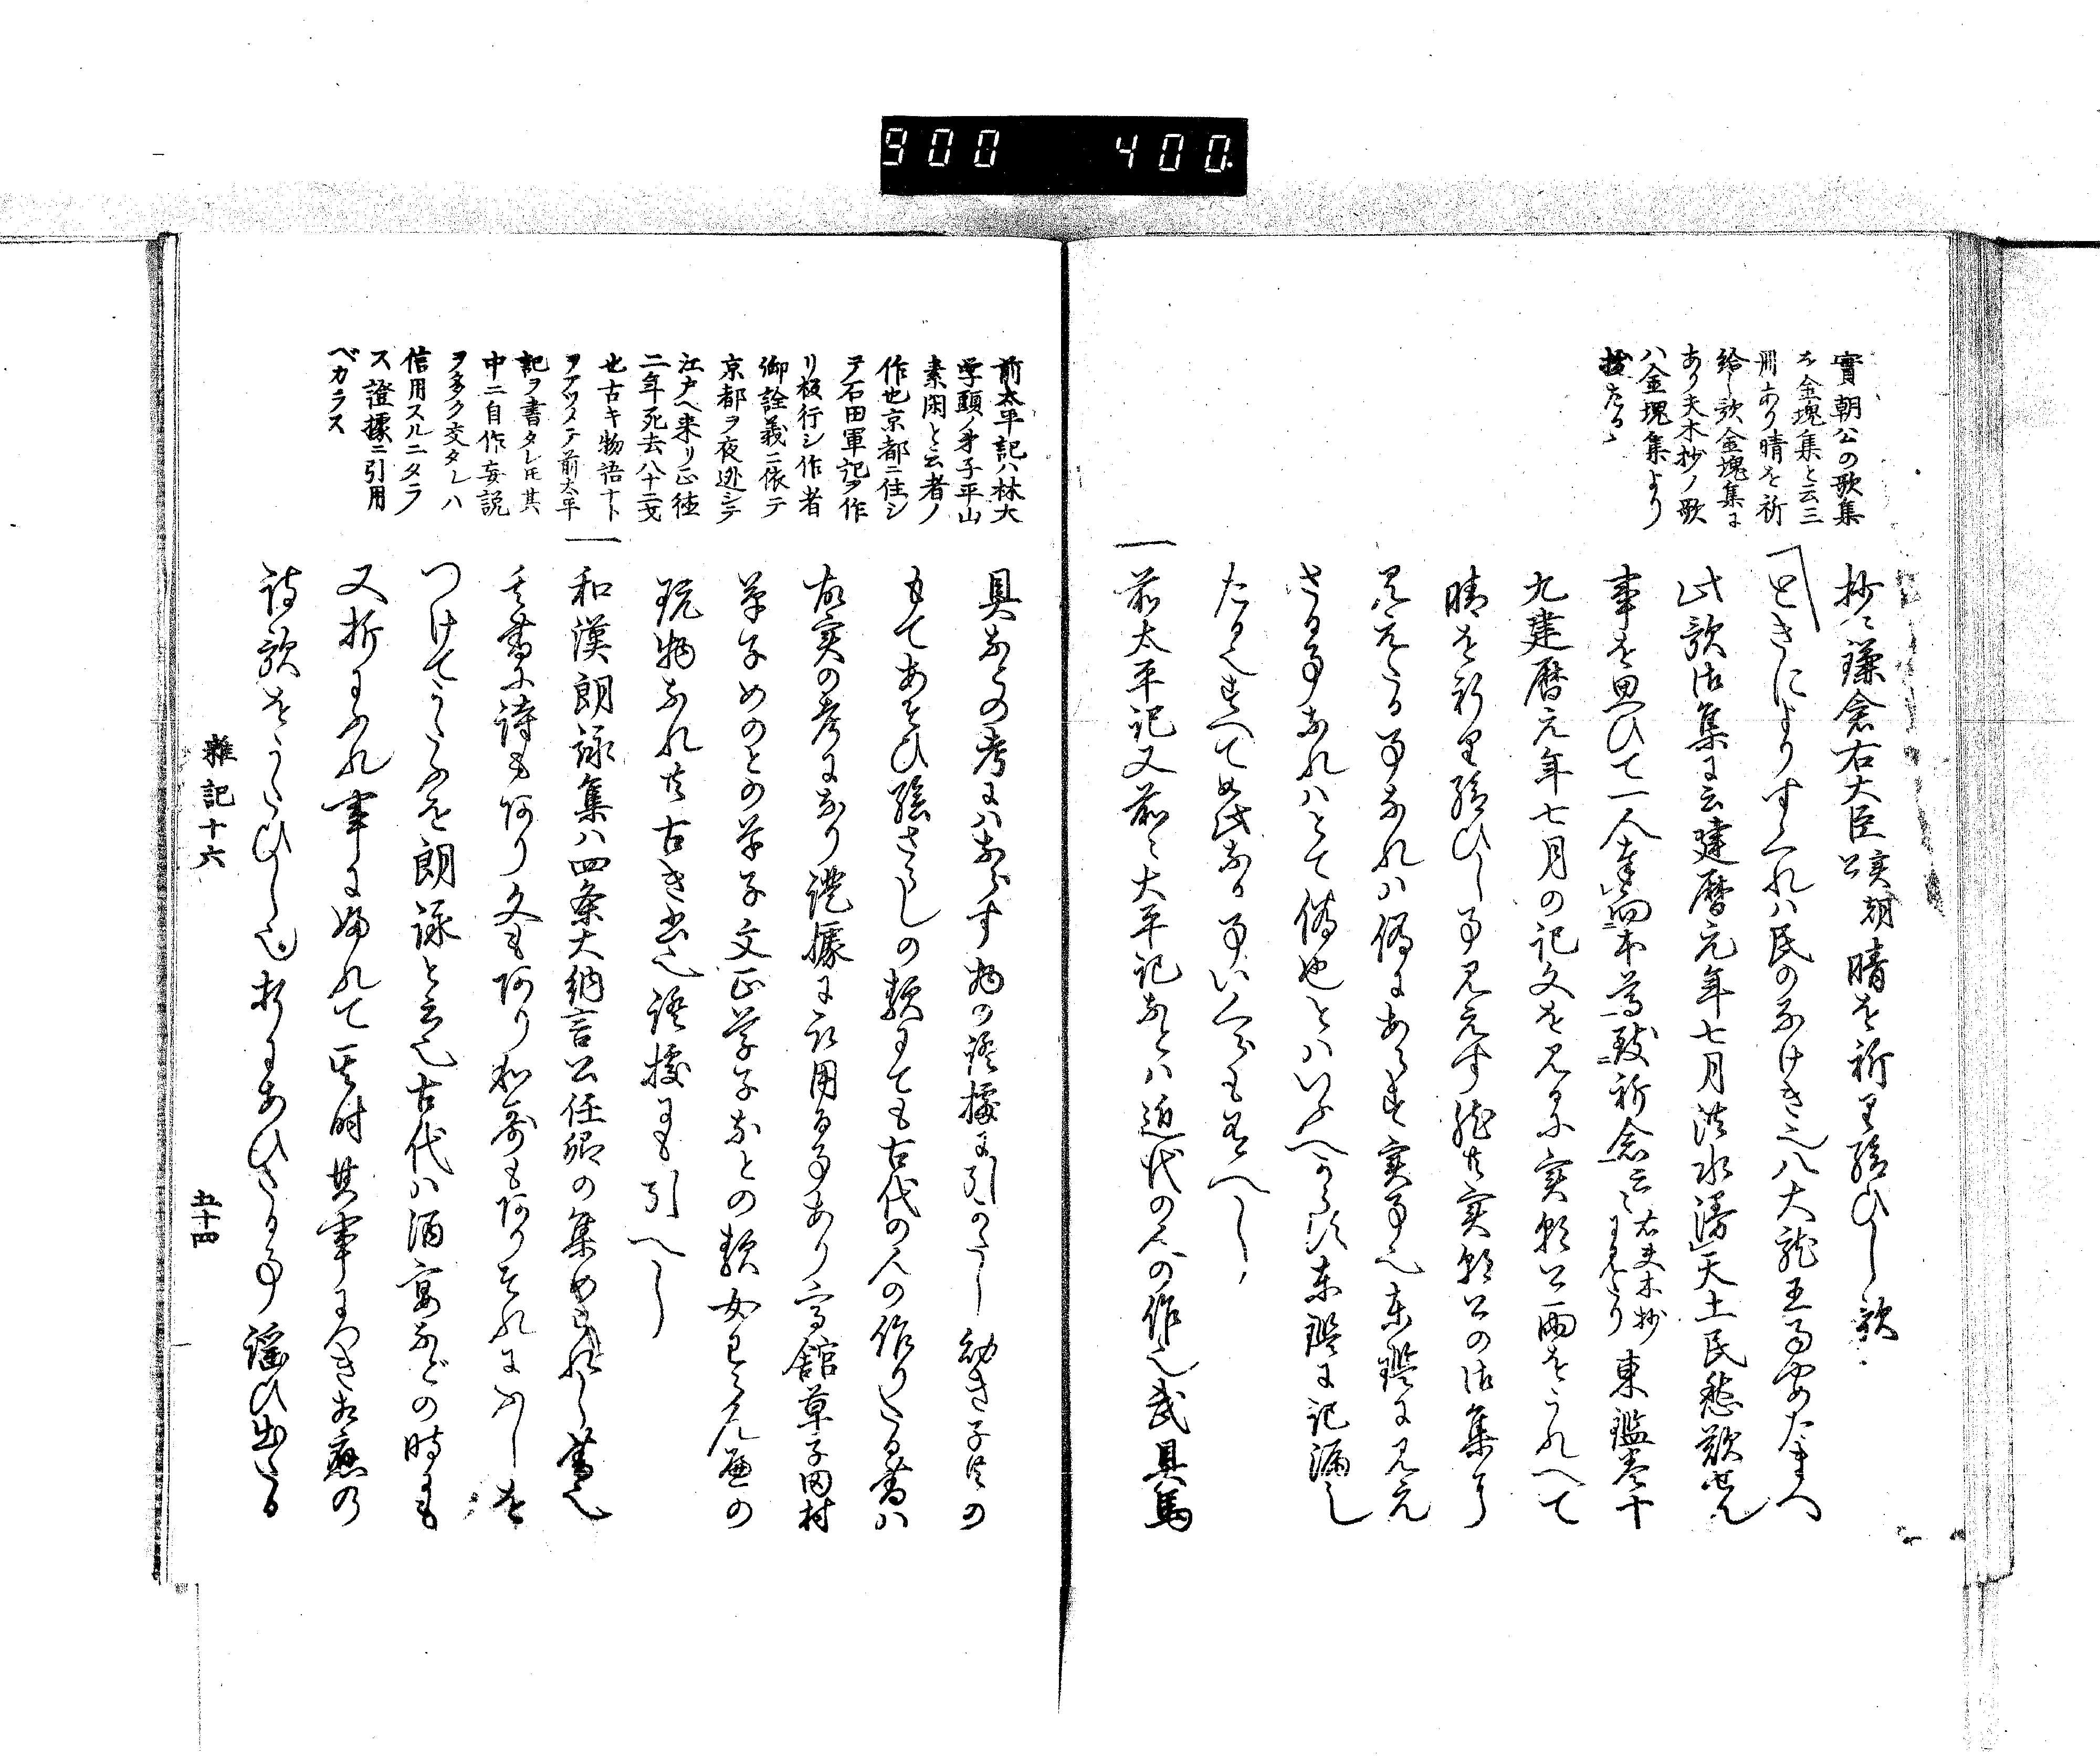 900 400
實朝公の歌集
を金塊集と云三
川あり晴を祈
給し歌金塊集に
あり夫木抄ノ歌
ハ金塊集より
抄に鎌倉右大臣実朝公晴を祈り給ひし歌
ときによりすくれハ民のなけき也八大龍王あめやめたまへ
此歌御集に云建暦元年七月洪水漫天土民愁歎せん
事を思ひて一人奉向本尊致祈念云々右夫木抄にみえたり東鑑巻十
九建暦元年七月の記文を見るに実朝公雨をうれへて
晴を祈り給ひし事見えす然共実朝公の御集に
見えたる事なれハ偽にあらす実事也東鑑に見え
さる事なれハとて偽也とハいふへからす東鑑に記漏し
たる也すへて如此なる事いくらも有へし
一前太平記又前々太平記なとハ近代の人の作也武具馬
前太平記ハ林大
学頭ノ弟子平山
素閑と云者ノ
作也京都ニ住シ
テ石田軍記ヲ作
リ板行シ作者
御詮義ニ依テ
京都ヲ夜逃シテ
江戸ヘ来リ正徳
二年死去八十二才
也古キ物語ナト
ヲアツメテ前太平
記ヲ書タレ𪜈其
中ニ自作妄説
ヲ多ク交タレハ
信用スルニタラ
ス證據ニ引用
ベカラス
具なとの考にハならす物の證據に引かたし幼き子共の
もてあそひ絵さうしの類にても古代の人の作りたる書ハ
故実の考になり證據に取用る事あり高舘草子田村
草子めのとの草子文正草子なとの類女わらへの
玩物なれ共古き書也證據にも引へし
一和漢朗詠集ハ四条大納言公任卿の集められし書也
其書に詩もあり文もあり和哥もありそれにふしを
つけてうたふを朗詠と云也古代ハ酒宴などの時にも
又折にふれ事に触れて其時其事につき相應の
詩歌をうたひし也折にあひたる事謡ひ出たる
雜記十六
五十四